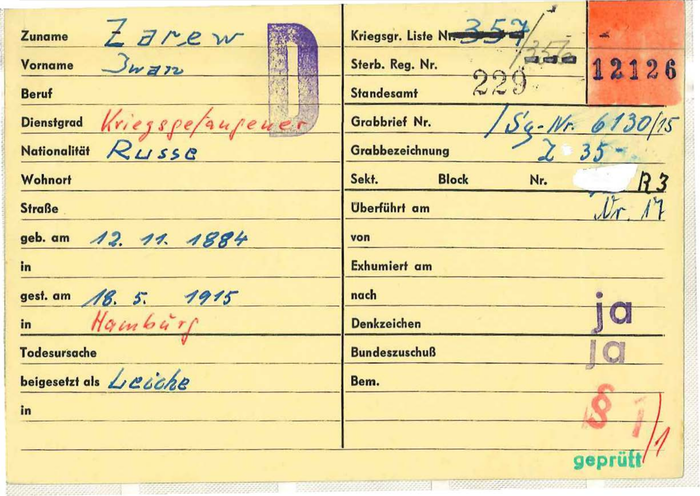 Zuname Zarew
Vorname Iwan
Beruf
Dienstgrad Kriegsgefangener
Nationalität Russe
Wohnort
Straße
geb. am 12. 11. 1884
in
gest. am 18. 5. 1915
in Hamburg
Todesursache
beigesetzt als Leiche
in
D
Kriegsgr. Liste Nr. 357
Sterb. Reg. Nr. 229
Standesamt
12126
Grabbrief Nr. /Sg-Nr. 6130/15
Grabbezeichnung Z 35-
Sekt. Block Nr. R3
Überführt am Nr. 17
von
Exhumiert am
nach
Denkzeichen ja
Bundeszuschuß ja
Bem.
§ 1/1
geprüft